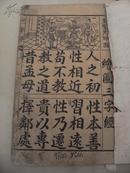 繪圖三字經
人之初 性本善
性相近 習相遠
苟不教 性乃遷
教之道 貴以專
昔孟母 擇鄰處